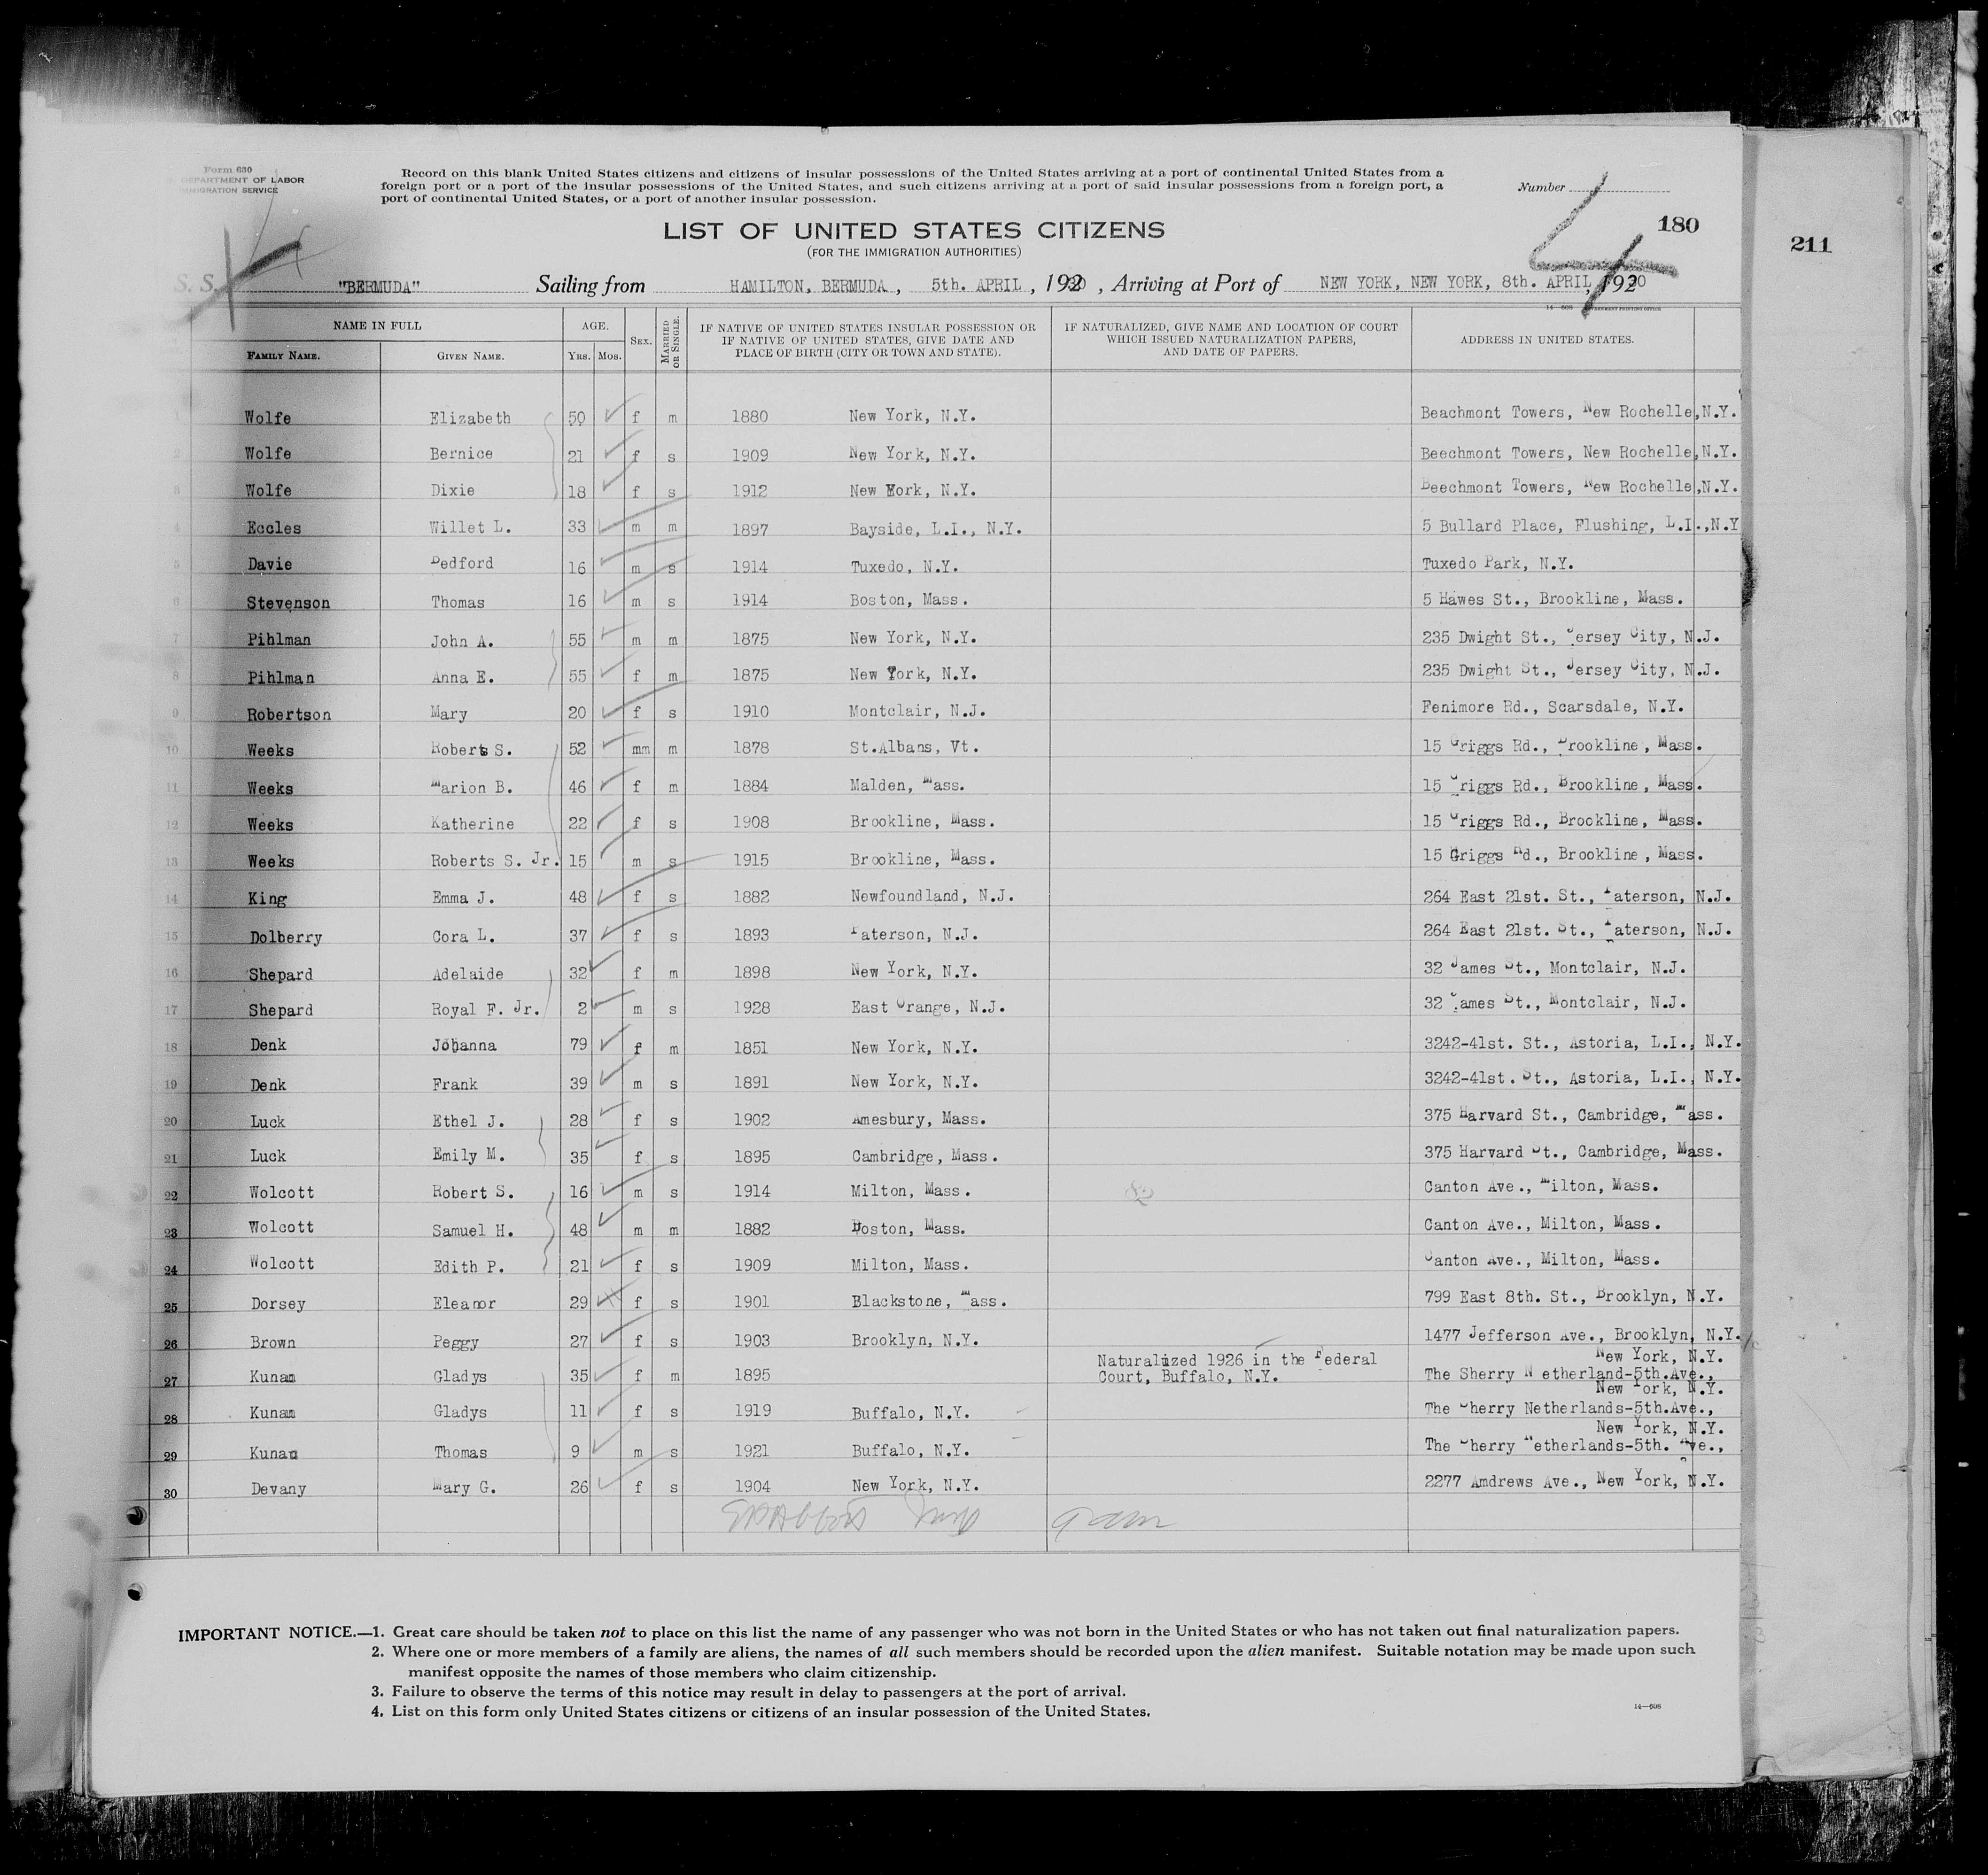 Form 630
DEPARTMENT OF LABOR
IMMIGRATION SERVICE
Record on this blank United States citizens and citizens of insular possessions of the United States arriving at a port of continental United States from a
foreign port or a port of the insular possessions of the United States, and such citizens arriving at a port of said insular possessions from a foreign port, a
port of continental United States, or a port of another insular possession.
Number
4
180
211
LIST OF UNITED STATES CITIZENS
(FOR THE IMMIGRATION AUTHORITIES)
S. S. "BERMUDA" Sailing from HAMILTON, BERMUDA, 5th. APRIL, 1930, Arriving at Port of NEW YORK, NEW YORK, 8th. APRIL, 1930
14—608 GOVERNMENT PRINTING OFFICE
NAME IN FULL
FAMILY NAME. GIVEN NAME.
AGE.
YRS. MOS.
SEX.
MARRIED OR SINGLE.
IF NATIVE OF UNITED STATES INSULAR POSSESSION OR
IF NATIVE OF UNITED STATES, GIVE DATE AND
PLACE OF BIRTH (CITY OR TOWN AND STATE).
IF NATURALIZED, GIVE NAME AND LOCATION OF COURT
WHICH ISSUED NATURALIZATION PAPERS,
AND DATE OF PAPERS.
ADDRESS IN UNITED STATES.
1 Wolfe Elizabeth 50 f m 1880 New York, N.Y. Beachmont Towers, New Rochelle, N.Y.
2 Wolfe Bernice 21 f s 1909 New York, N.Y. Beechmont Towers, New Rochelle, N.Y.
3 Wolfe Dixie 18 f s 1912 New York, N.Y. Beechmont Towers, New Rochelle, N.Y.
4 Eccles Willet L. 33 m m 1897 Bayside, L.I., N.Y. 5 Bullard Place, Flushing, L.I., N.Y
5 Davie Bedford 16 m s 1914 Tuxedo, N.Y. Tuxedo Park, N.Y.
6 Stevenson Thomas 16 m s 1914 Boston, Mass. 5 Hawes St., Brookline, Mass.
7 Pihlman John A. 55 m m 1875 New York, N.Y. 235 Dwight St., Jersey City, N.J.
8 Pihlman Anna E. 55 f m 1875 New York, N.Y. 235 Dwight St., Jersey City, N.J.
9 Robertson Mary 20 f s 1910 Montclair, N.J. Fenimore Rd., Scarsdale, N.Y.
10 Weeks Roberts S. 52 mm m 1878 St.Albans, Vt. 15 Griggs Rd., Brookline, Mass.
11 Weeks Marion B. 46 f m 1884 Malden, Mass. 15 Griggs Rd., Brookline, Mass.
12 Weeks Katherine 22 f s 1908 Brookline, Mass. 15 Griggs Rd., Brookline, Mass.
13 Weeks Roberts S. Jr. 15 m s 1915 Brookline, Mass. 15 Griggs Rd., Brookline, Mass.
14 King Emma J. 48 f s 1882 Newfoundland, N.J. 264 East 21st. St., Paterson, N.J.
15 Dolberry Cora L. 37 f s 1893 Paterson, N.J. 264 East 21st. St., Paterson, N.J.
16 Shepard Adelaide 32 f m 1898 New York, N.Y. 32 James St., Montclair, N.J.
17 Shepard Royal F. Jr. 2 m s 1928 East Orange, N.J. 32 James St., Montclair, N.J.
18 Denk Johanna 79 f m 1851 New York, N.Y. 3242-41st. St., Astoria, L.I., N.Y.
19 Denk Frank 39 m s 1891 New York, N.Y. 3242-41st. St., Astoria, L.I., N.Y.
20 Luck Ethel J. 28 f s 1902 Amesbury, Mass. 375 Harvard St., Cambridge, Mass.
21 Luck Emily M. 35 f s 1895 Cambridge, Mass. 375 Harvard St., Cambridge, Mass.
22 Wolcott Robert S. 16 m s 1914 Milton, Mass. Canton Ave., Milton, Mass.
23 Wolcott Samuel H. 48 m m 1882 Boston, Mass. Canton Ave., Milton, Mass.
24 Wolcott Edith P. 21 f s 1909 Milton, Mass. Canton Ave., Milton, Mass.
25 Dorsey Eleanor 29 f s 1901 Blackstone, Mass. 799 East 8th. St., Brooklyn, N.Y.
26 Brown Peggy 27 f s 1903 Brooklyn, N.Y. 1477 Jefferson Ave., Brooklyn, N.Y.
Naturalized 1926 in the Federal New York, N.Y.
27 Kunan Gladys 35 f m 1895 Court, Buffalo, N.Y. The Sherry Netherland-5th.Ave.,
New York, N.Y.
28 Kunan Gladys 11 f s 1919 Buffalo, N.Y. The Sherry Netherlands-5th.Ave.,
New York, N.Y.
29 Kunan Thomas 9 m s 1921 Buffalo, N.Y. The Sherry Netherlands-5th. Ave.,
30 Devany Mary G. 26 f s 1904 New York, N.Y. 2277 Amdrews Ave., New York, N.Y.
IMPORTANT NOTICE.—1. Great care should be taken not to place on this list the name of any passenger who was not born in the United States or who has not taken out final naturalization papers.
2. Where one or more members of a family are aliens, the names of all such members should be recorded upon the alien manifest. Suitable notation may be made upon such
manifest opposite the names of those members who claim citizenship.
3. Failure to observe the terms of this notice may result in delay to passengers at the port of arrival.
4. List on this form only United States citizens or citizens of an insular possession of the United States.
14—608